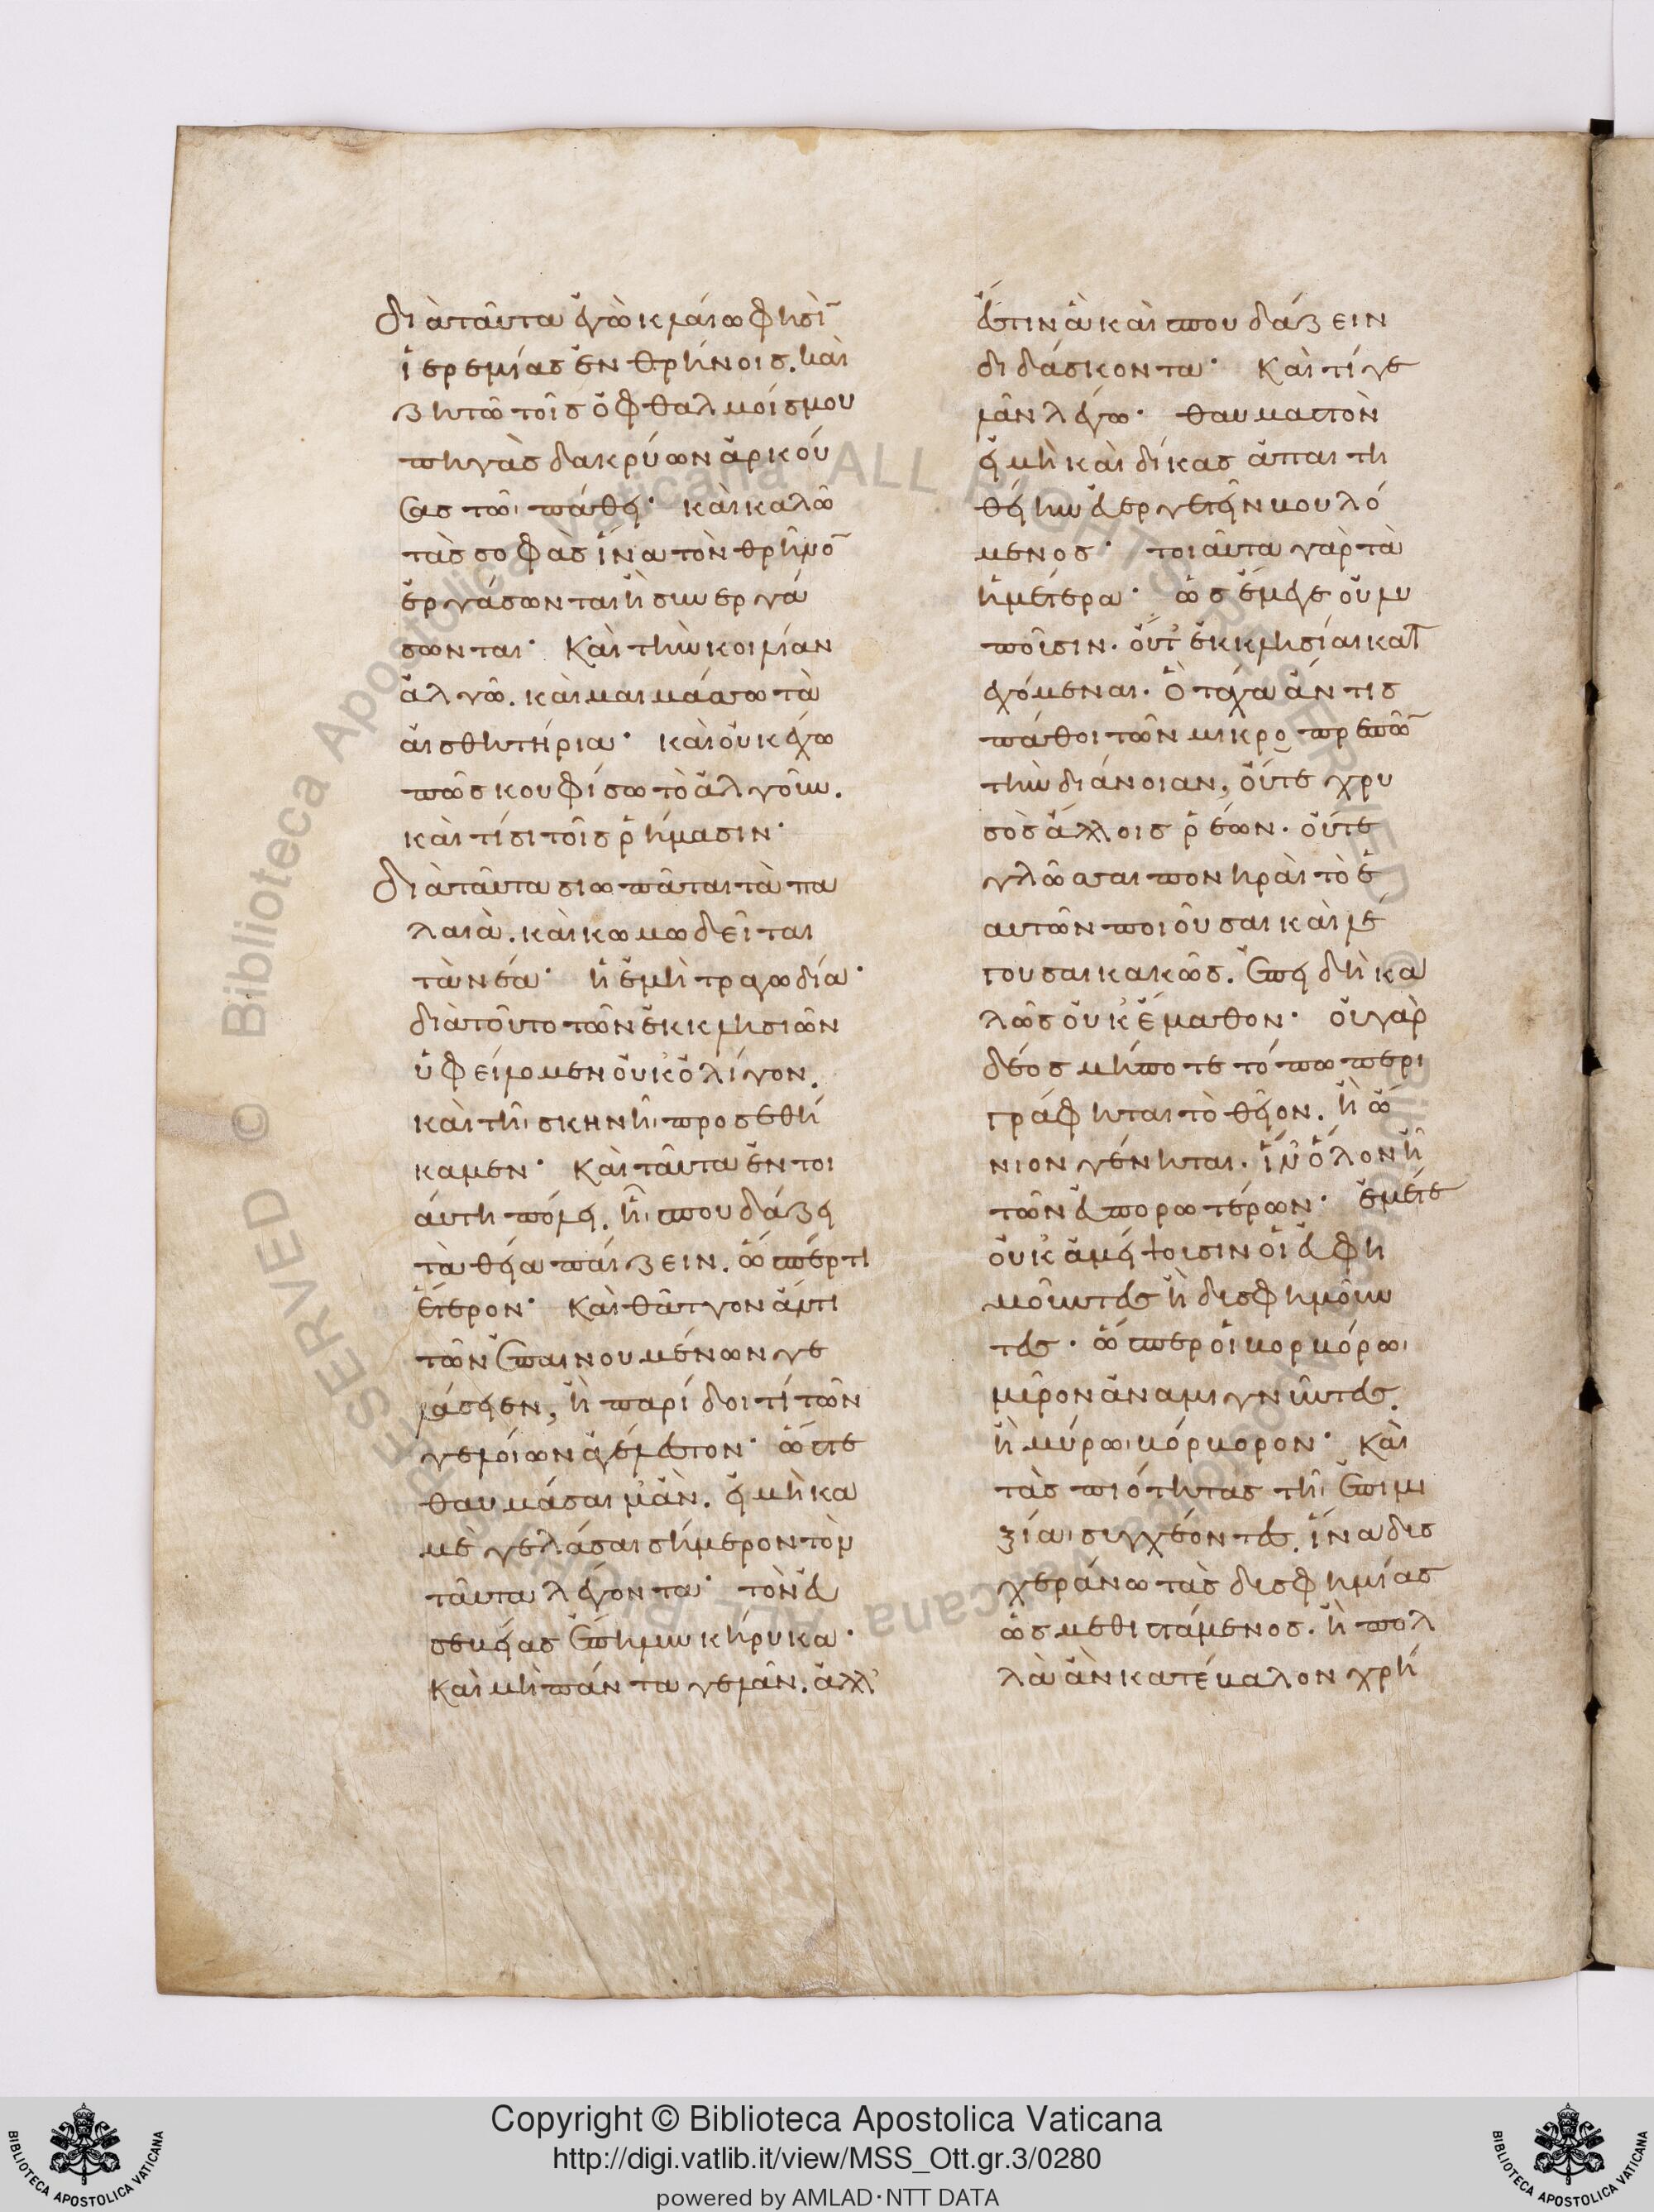 διὰ ταῦτα ἐγὼ κλαίω φησὶ
ἱερεμίας ἐν θρήνοις. καὶ
ζητῶ τοῖς ὀφθαλμοίς μου
πηγὰς δακρύων ἀρκού
σας τῶι πάθει· καὶ καλῶ
τὰς σοφὰς ἵνα τὸν θρῆνο
ἐργάσωνται ἢ συνεργά
σωνται· Καὶ τὴν κοιλίαν
ἀλγῶ. καὶ μαιμάσσω τὰ
αἰσθητήρια· καὶ οὐκ ἔχω
πῶς κουφίσω τὸ ἀλγοῦν.
καὶ τίσι τοῖς ῥήμασιν·
διὰ ταῦτα σιωπᾶται τὰ πα
λαιὰ. καὶ κωμωδεῖται
τὰ νέα· ἡ ἐμὴ τραγωδία·
διὰ τοῦτο τῶν ἐκκλησιῶν
ὑφείλομεν οὐκ ὀλίγον.
καὶ τῆι σκηνῆι προσεθή
καμεν· Καὶ ταῦτα ἐν τοι
αύτη πόλει. ἣ σπουδάζει
τὰ θεῖα παίζειν. ὥσπέρ τι
ἕτερον· Καὶ θᾶττον ἄν τι
τῶν ἐπαινουμένων γε
λάσειεν, ἢ παρίδοι τί τῶν
γελοίων ἀγέλαστον· ὥστε
θαυμάσαιμ' ἂν. εἰ μὴ κα
μὲ γελάσαι σήμερον τὸν
ταῦτα λέγοντα· τὸν εὐ
σεβείας ἔπηλυν κήρυκα·
Καὶ μὴ πάντα γελᾶν. ἀλλ'
ἔστιν ἃ καὶ σπουδάζειν
διδάσκοντα· Καὶ τί γε
λᾶν λέγω· θαυμαστὸν
εἰ μὴ καὶ δίκας ἀπαιτη
θείην εὐεργετεῖν βουλό
μενος· τοιαῦτα γὰρ τὰ
ἡμέτερα· ὡς ἔμεγε οὐ λυ
ποῦσιν. οὔτ' ἐκκλησίαι κατ
εχόμεναι. Ὃ τάχα ἄν τις
πάθοι τῶν μικροπρεπῶ
τὴν διάνοιαν, οὔτε χρυ
σὸς ἄλλοις ῥέων. οὔτε
γλῶσσαι πονηραὶ τὸ ἑ
αυτῶν ποιοῦσαι καὶ λέ
γουσαι κακῶς. ἐπεὶ δὴ κα
λῶς οὐκ ἔμαθον· οὐ γὰρ
δέος μήποτε τόπω περι
γράφηται τὸ θεῖον. ἢ ὤ
νιον γένηται. ἵν' ὅλον ἦ
τῶν εὐπορωτέρων· ἐμέτε
οὐκ ἀμείβουσιν οἱ εὐφη
μοῦντες ἢ δυσφημοῦν
τες. ὥσπερ οἱ βορβόρωι
μύρον ἀναμιγνῦντες.
ἢ μύρωι βόρβορον· Καὶ
τὰς ποιότητας τῆι ἐπιμι
ξίαι συγχέοντες. ἵνα δυσ
χεράνω τὰς δυσφημίας
ὡς μεθιστάμενος. ἢ πολ
λὰ ἂν κατέβαλον χρή
Copyright © Biblioteca Apostolica Vaticana
http://digi.vatlib.it/view/MSS_Ott.gr.3/0280
powered by AMLAD·NTT DATA
BIBLIOTECA APOSTOLICA VATICANA
BIBLIOTECA APOSTOLICA VATICANA